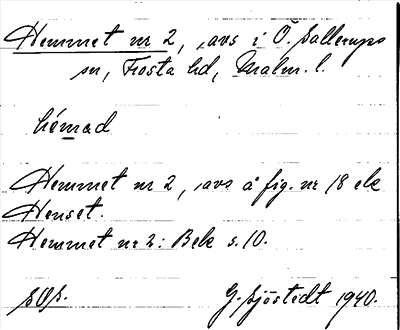 Hemmet nr 2, avs i Ö. Sallerups
sn, Frosta hd, Malm. l.
hémad
Hemmet nr 2, avs å fig. nr 18 ek
Henset.
Hemmet nr 2: Bek s. 10.
G. Sjöstedt 1940.